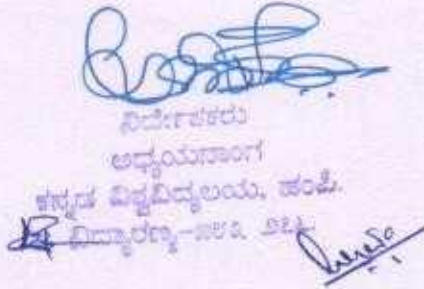 ನಿರ್ದೇಶಕರು
ಅಧ್ಯಯನಾಂಗ
ಕನ್ನಡ ವಿಶ್ವವಿದ್ಯಾಲಯ, ಹಂಪಿ.
ವಿದ್ಯಾರಣ್ಯ-೫೮೩ ೨೭೬